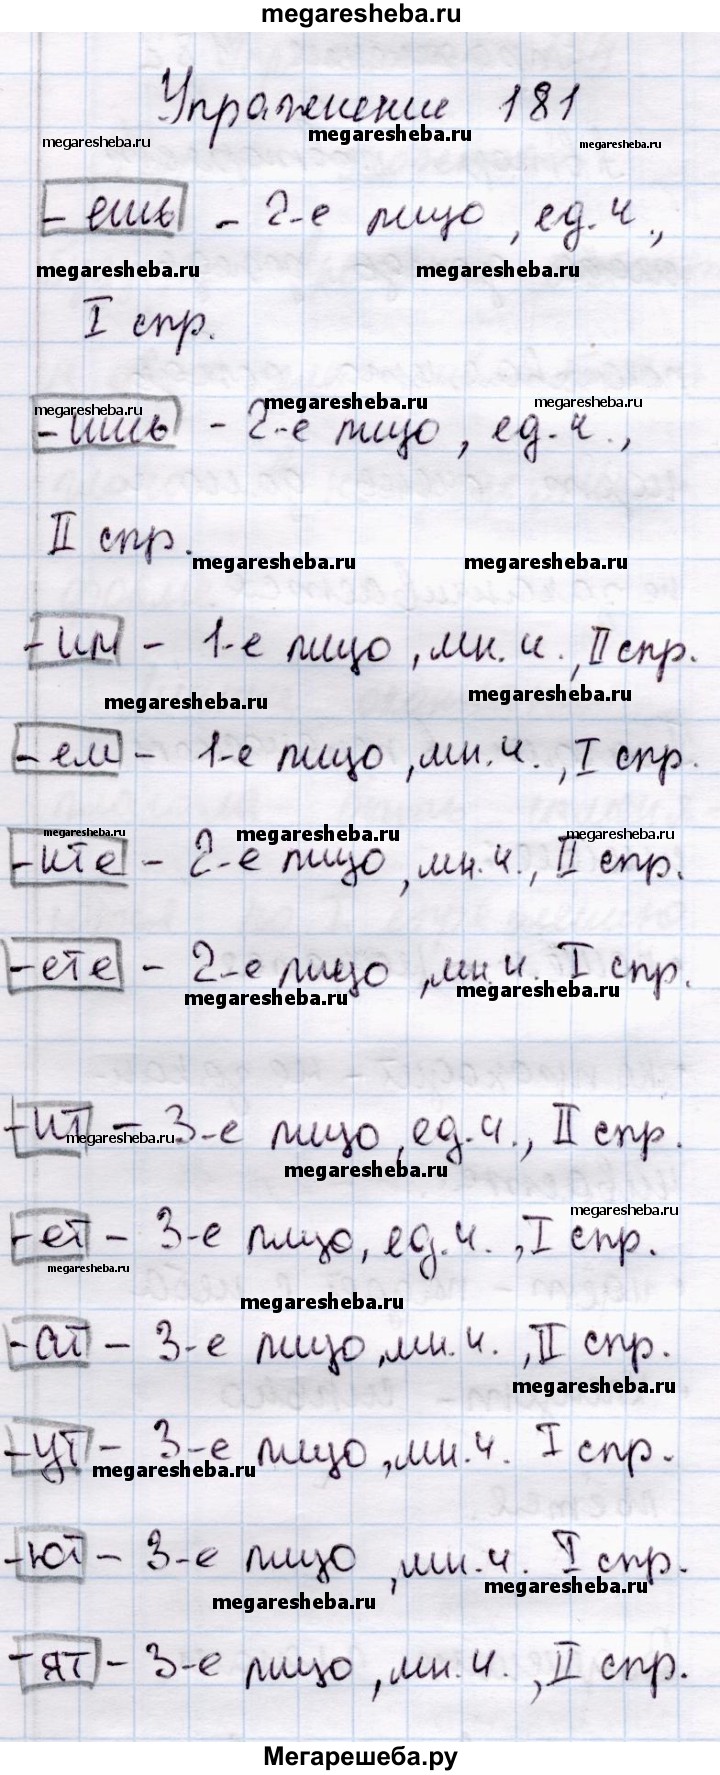 megaresheba.ru
Упражнение 181
megaresheba.ru megaresheba.ru megaresheba.ru
-ешь - 2-е лицо, ед.ч.,
megaresheba.ru megaresheba.ru
I спр.
megaresheba.ru megaresheba.ru megaresheba.ru
-ишь - 2-е лицо, ед.ч.,
II спр.
megaresheba.ru megaresheba.ru
-им - 1-е лицо, мн.ч., II спр.
megaresheba.ru megaresheba.ru
-ем - 1-е лицо, мн.ч., I спр.
megaresheba.ru megaresheba.ru megaresheba.ru
-ите - 2-е лицо, мн.ч., II спр.
-ете - 2-е лицо, мн.ч. I спр.
megaresheba.ru megaresheba.ru
-ит - 3-е лицо, ед.ч., II спр.
megaresheba.ru
megaresheba.ru
megaresheba.ru
-ет - 3-е лицо, ед.ч., I спр.
megaresheba.ru
megaresheba.ru
-ат - 3-е лицо, мн.ч., II спр.
megaresheba.ru
-ут - 3-е лицо, мн.ч. I спр.
megaresheba.ru
-ют - 3-е лицо, мн.ч. I спр.
megaresheba.ru megaresheba.ru
-ят - 3-е лицо, мн.ч., II спр.
Мегарешеба.ру